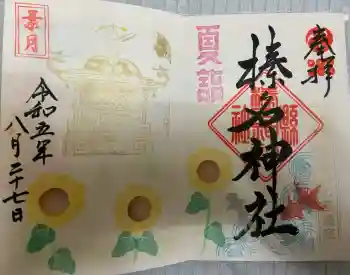 奉拝
榛名神社
夏詣
葉月
令和五年
八月二十七日